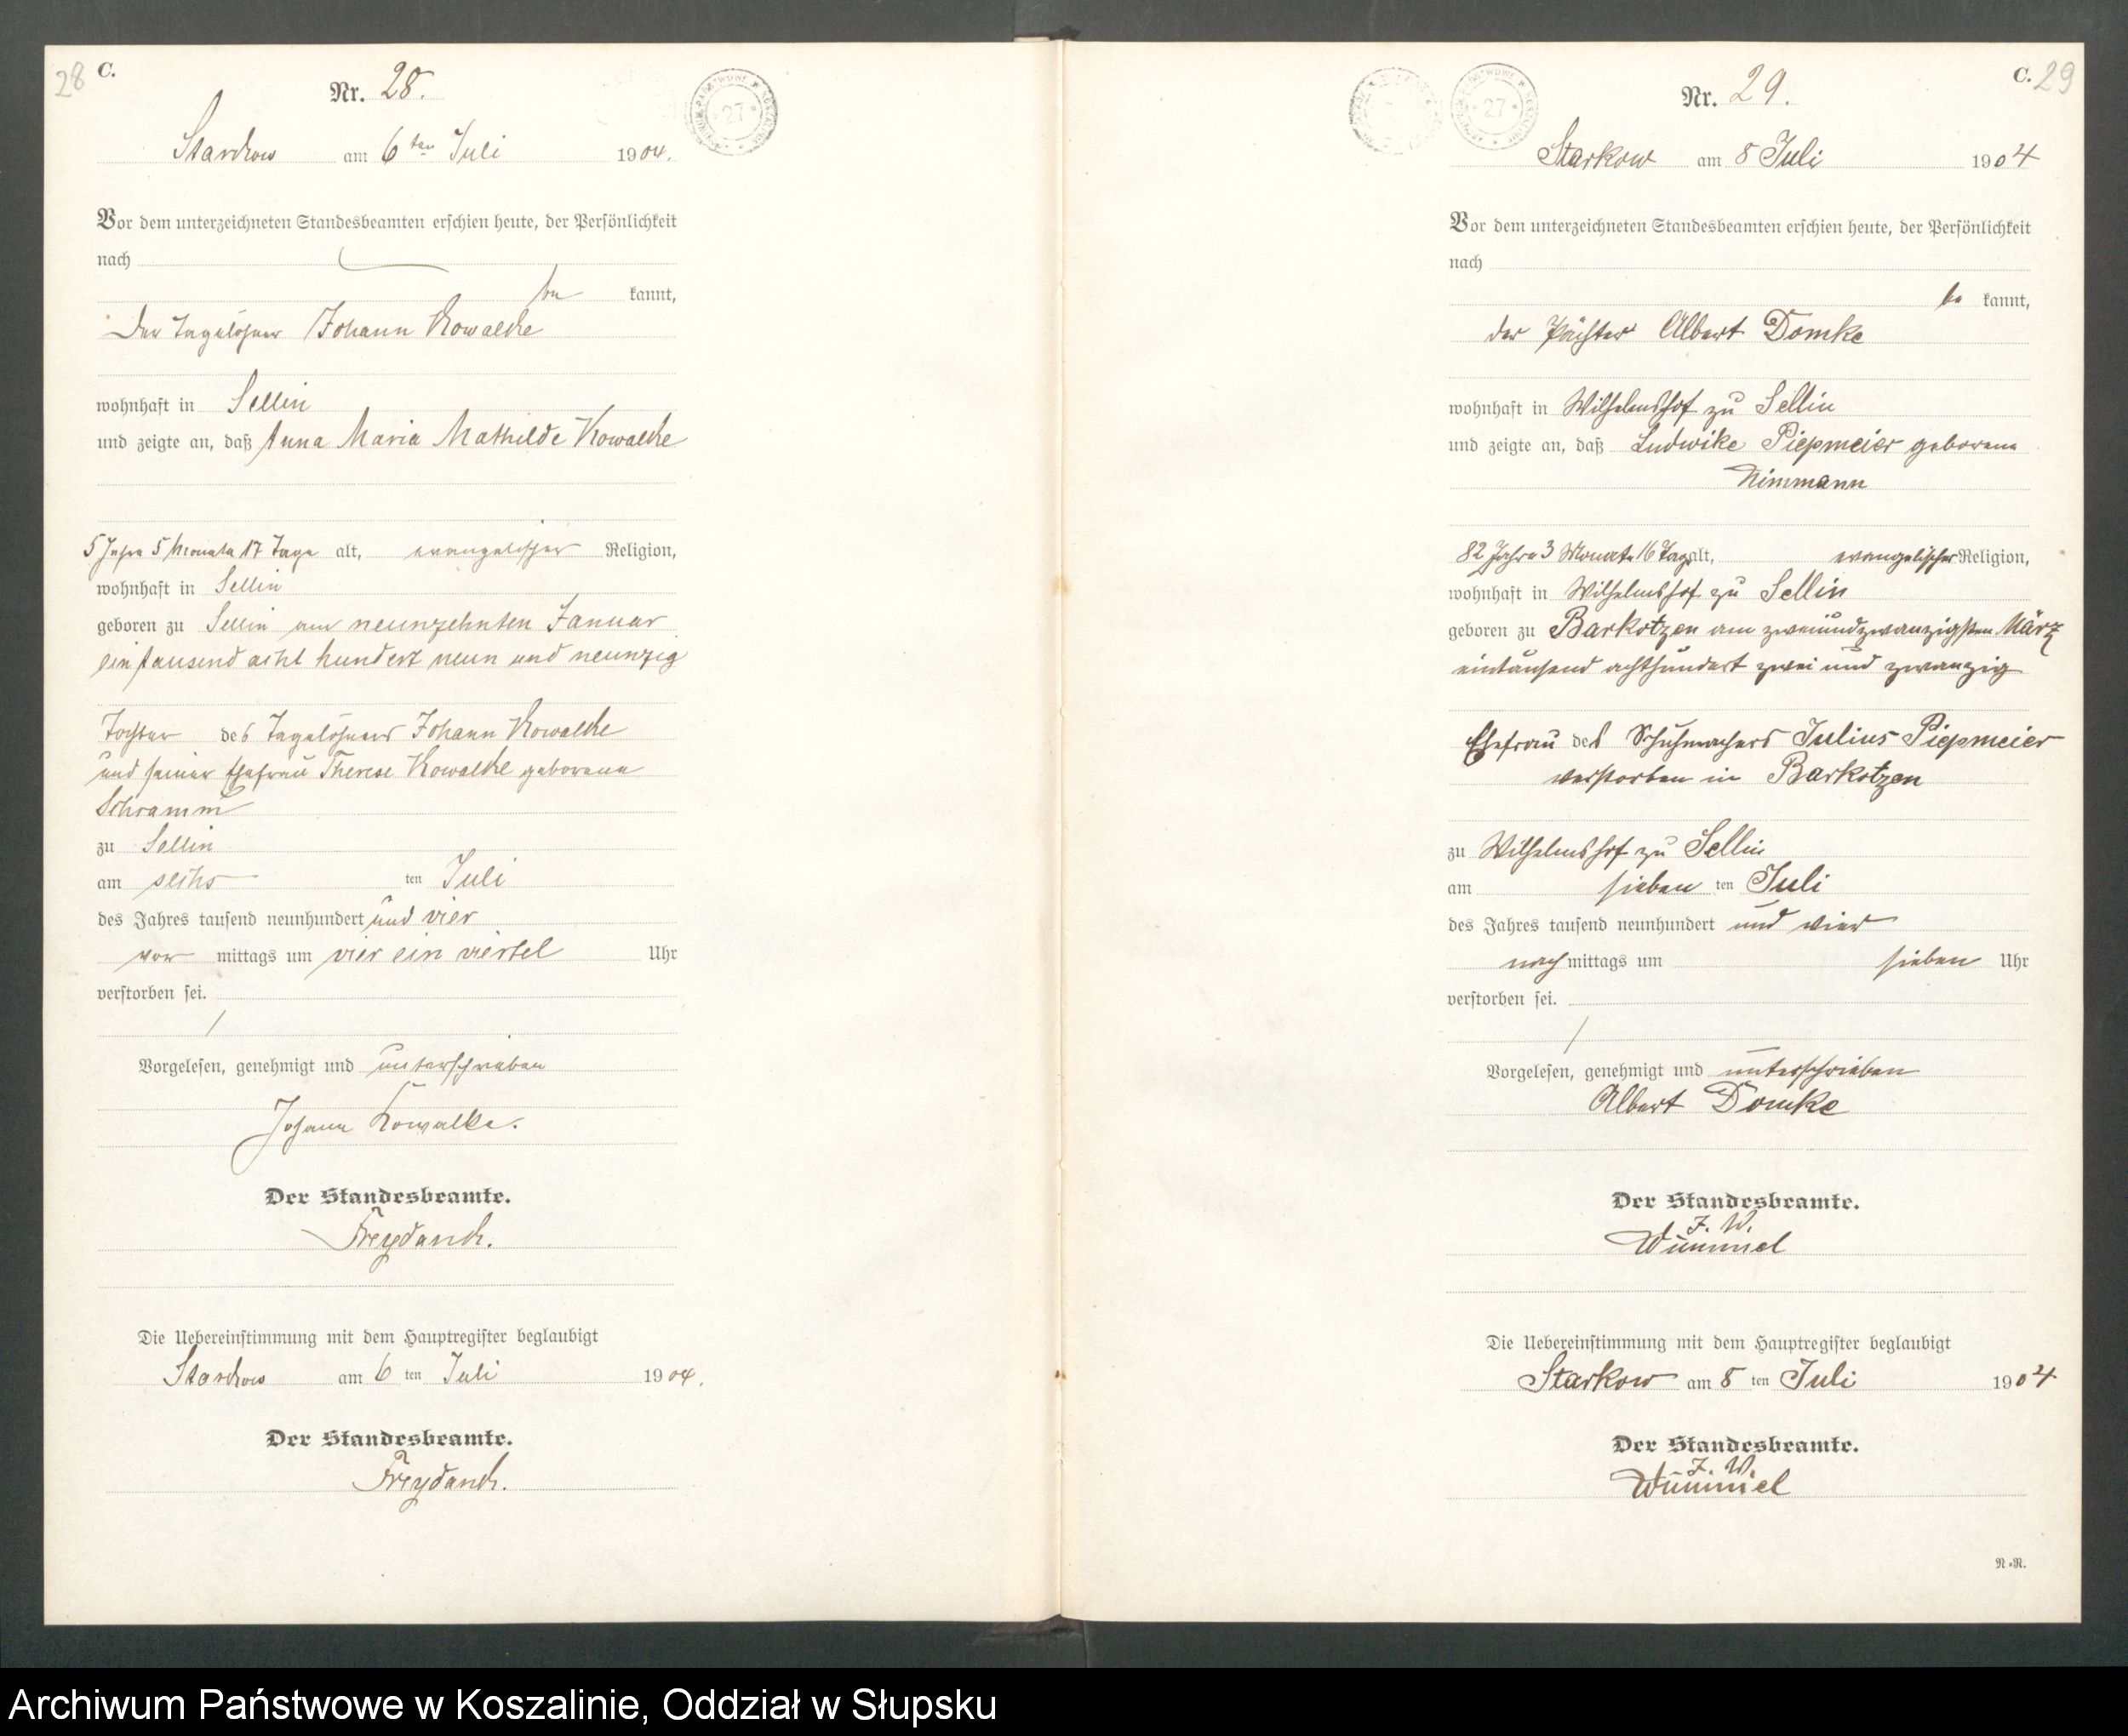 28
C.
Nr. 28.
Starckow am 6ten Juli 1904.
Vor dem unterzeichneten Standesbeamten erschien heute, der Persönlichkeit
nach
be kannt,
Der Tagelöhner Johann Kowalcke
wohnhaft in Sellin
und zeigte an, daß Anna Maria Mathilde Kowalcke
5 Jahre 5 Monate 17 Tage alt, evangelischer Religion,
wohnhaft in Sellin
geboren zu Sellin am neunzehnten Januar
ein tausend acht hundert neun und neunzig
Tochter des Tagelöhners Johann Kowalcke
und seiner Ehefrau Therese Kowalcke geborene
Schramm
zu Sellin
am sechs ten Juli
des Jahres tausend neunhundert und vier
vor mittags um vier ein viertel Uhr
verstorben sei.
Vorgelesen, genehmigt und unterschrieben
Johann Kowalke.
Der Standesbeamte.
Freydanck.
Die Uebereinstimmung mit dem Hauptregister beglaubigt
Starckow am 6 ten Juli 1904.
Der Standesbeamte.
Freydanck.
27
27
C. 29
Nr. 29.
Starkow am 8 Juli 1904
Vor dem unterzeichneten Standesbeamten erschien heute, der Persönlichkeit
nach
be kannt,
der Pächter Albert Domke
wohnhaft in Wilhelmshof zu Sellin
und zeigte an, daß Ludwike Piepmeier geborene
Nimmann
82 Jahre 3 Monate 16 Tage alt, evangelischer Religion,
wohnhaft in Wilhelmshof zu Sellin
geboren zu Barkotzen am zweiundzwanzigsten März
eintausend achthundert zwei und zwanzig
Ehefrau des Schuhmachers Julius Piepmeier
verstorben in Barkotzen
zu Wilhelmshof zu Sellin
am sieben ten Juli
des Jahres tausend neunhundert und vier
nach mittags um sieben Uhr
verstorben sei.
Vorgelesen, genehmigt und unterschrieben
Albert Domke
Der Standesbeamte.
J. V.
Wümmel
Die Uebereinstimmung mit dem Hauptregister beglaubigt
Starkow am 8 ten Juli 1904
Der Standesbeamte.
J. V.
Wümmel
N.=R.
Archiwum Państwowe w Koszalinie, Oddział w Słupsku